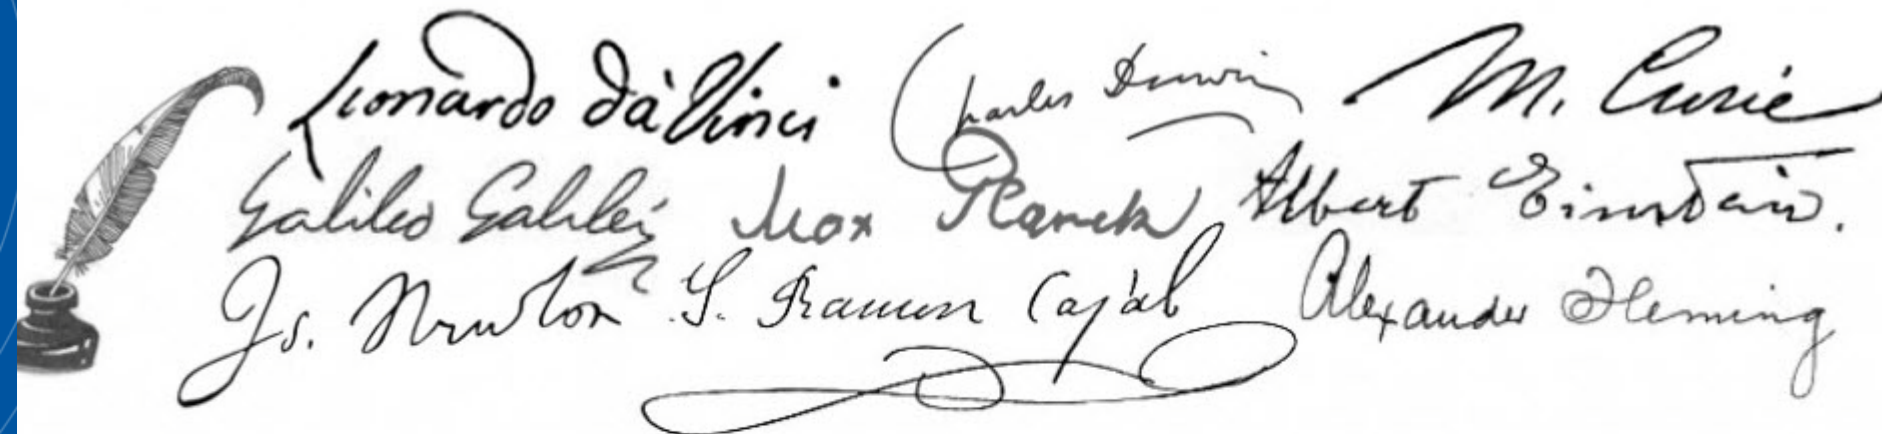 Leonardo da Vinci Charles Darwin M. Curie
Galileo Galilei Max Planck Albert Einstein.
Is. Newton S. Ramon Cajal Alexander Fleming